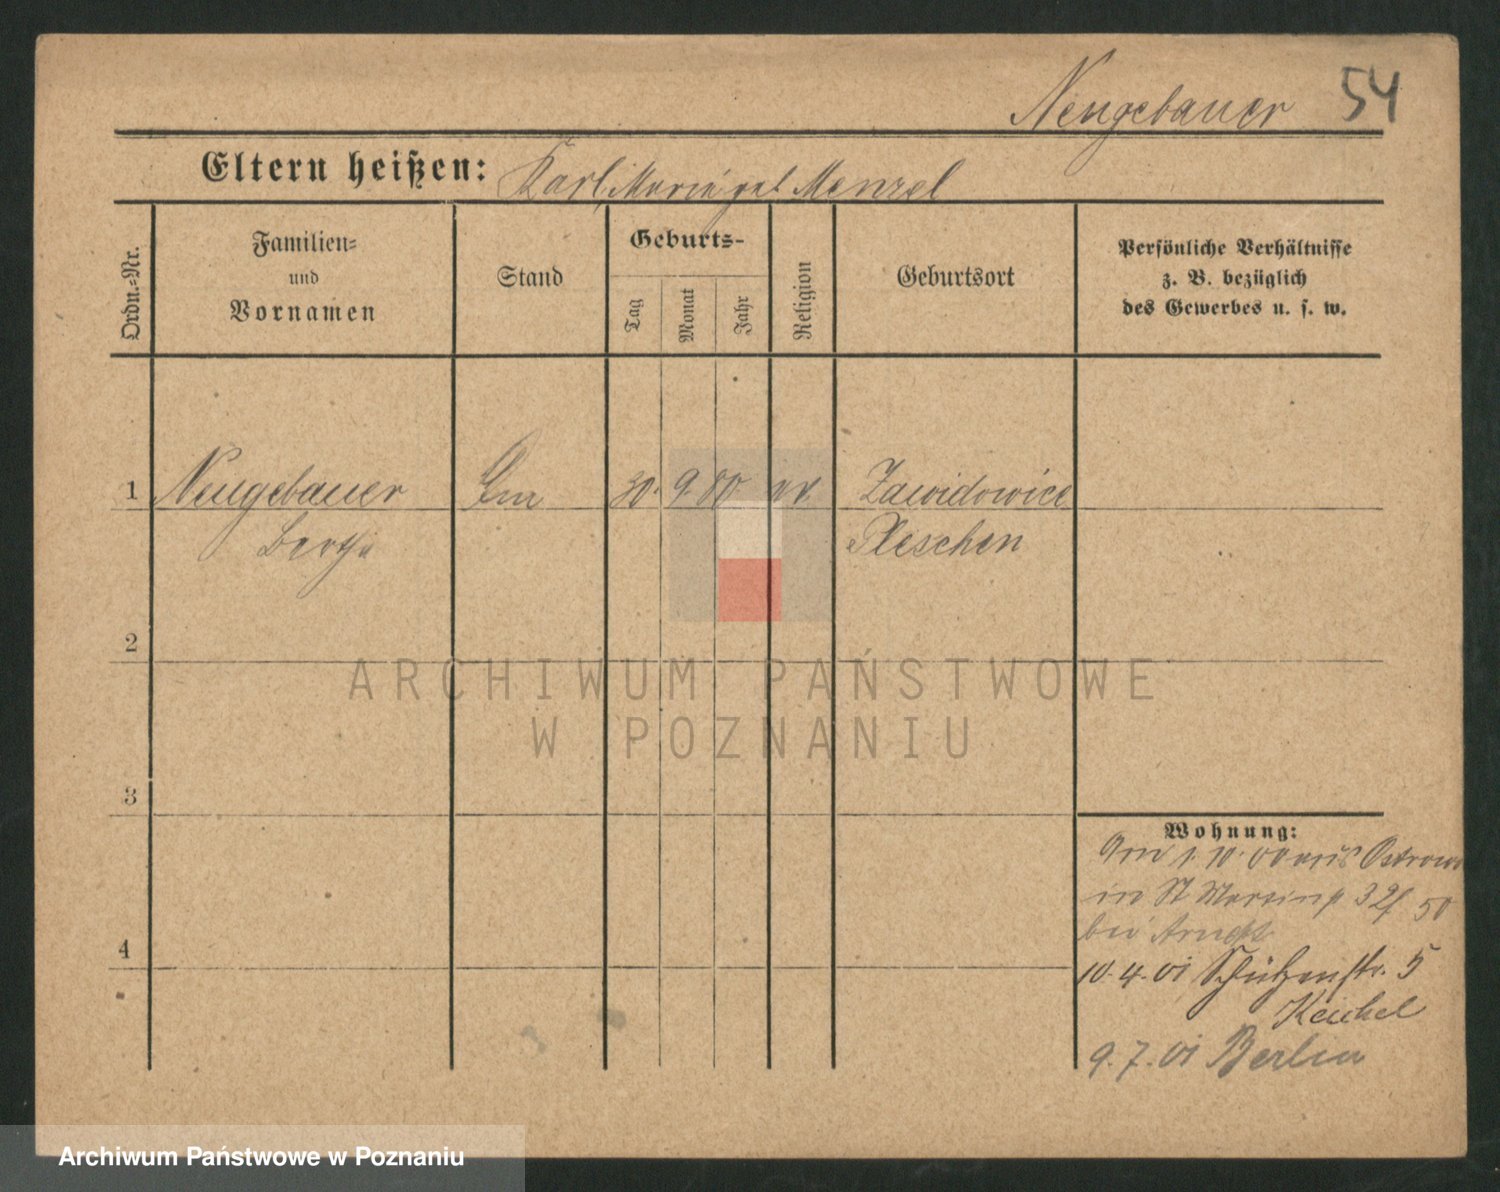 Neugebauer 54
Eltern heißen: Karl, Marie geb Menzel
Ordn.=Nr.
Familien=
und
Vornamen
Stand
Geburts-
Tag
Monat
Jahr
Religion
Geburtsort
Persönliche Verhältnisse
z. B. bezüglich
des Gewerbes u. s. w.
1 Neugebauer 30. 9. 80 ev. Zawidowice
Berta Pleschen
2
3
4
Wohnung:
1. 10. 00 aus Ostrowo
in St Martinstr 32/ 50
bei Arndt
10. 4. 01 Schützenstr. 5
9. 7. 01 Berlin
ARCHIWUM PAŃSTWOWE
W POZNANIU
Archiwum Państwowe w Poznaniu